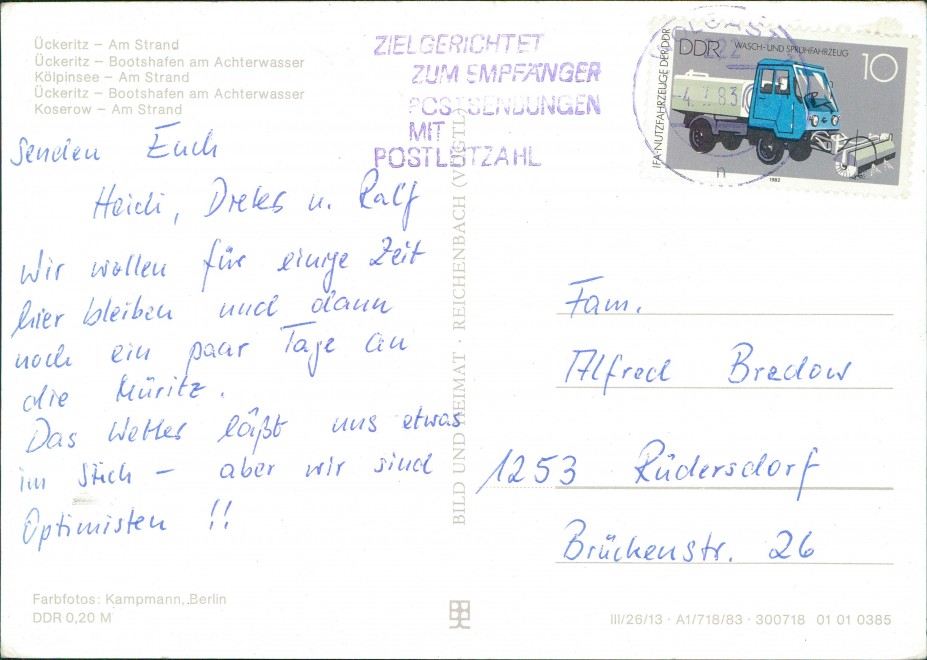 Ückeritz – Am Strand
Ückeritz – Bootshafen am Achterwasser
Kölpinsee – Am Strand
Ückeritz – Bootshafen am Achterwasser
Koserow – Am Strand
Senden Euch
Heidi, u. Ralf
Wir wollen für einige Zeit
hier bleiben und dann
noch ein paar Tage an
die Müritz.
Das Wetter läßt uns etwas
im Stich – aber wir sind
Optimisten !!
Farbfotos: Kampmann, Berlin
DDR 0,20 M
ZIELGERICHTET
ZUM EMPFÄNGER
POSTSENDUNGEN
MIT
POSTLEITZAHL
BILD UND HEIMAT · REICHENBACH (VOGTL)
IFA-NUTZFAHRZEUGE DER DDR
DDR
WASCH- UND SPRÜHFAHRZEUG
10
1982
n
Fam.
Alfred Bredow
1253 Rüdersdorf
Brückenstr. 26
III/26/13 · A1/718/83 · 300718 01 01 0385